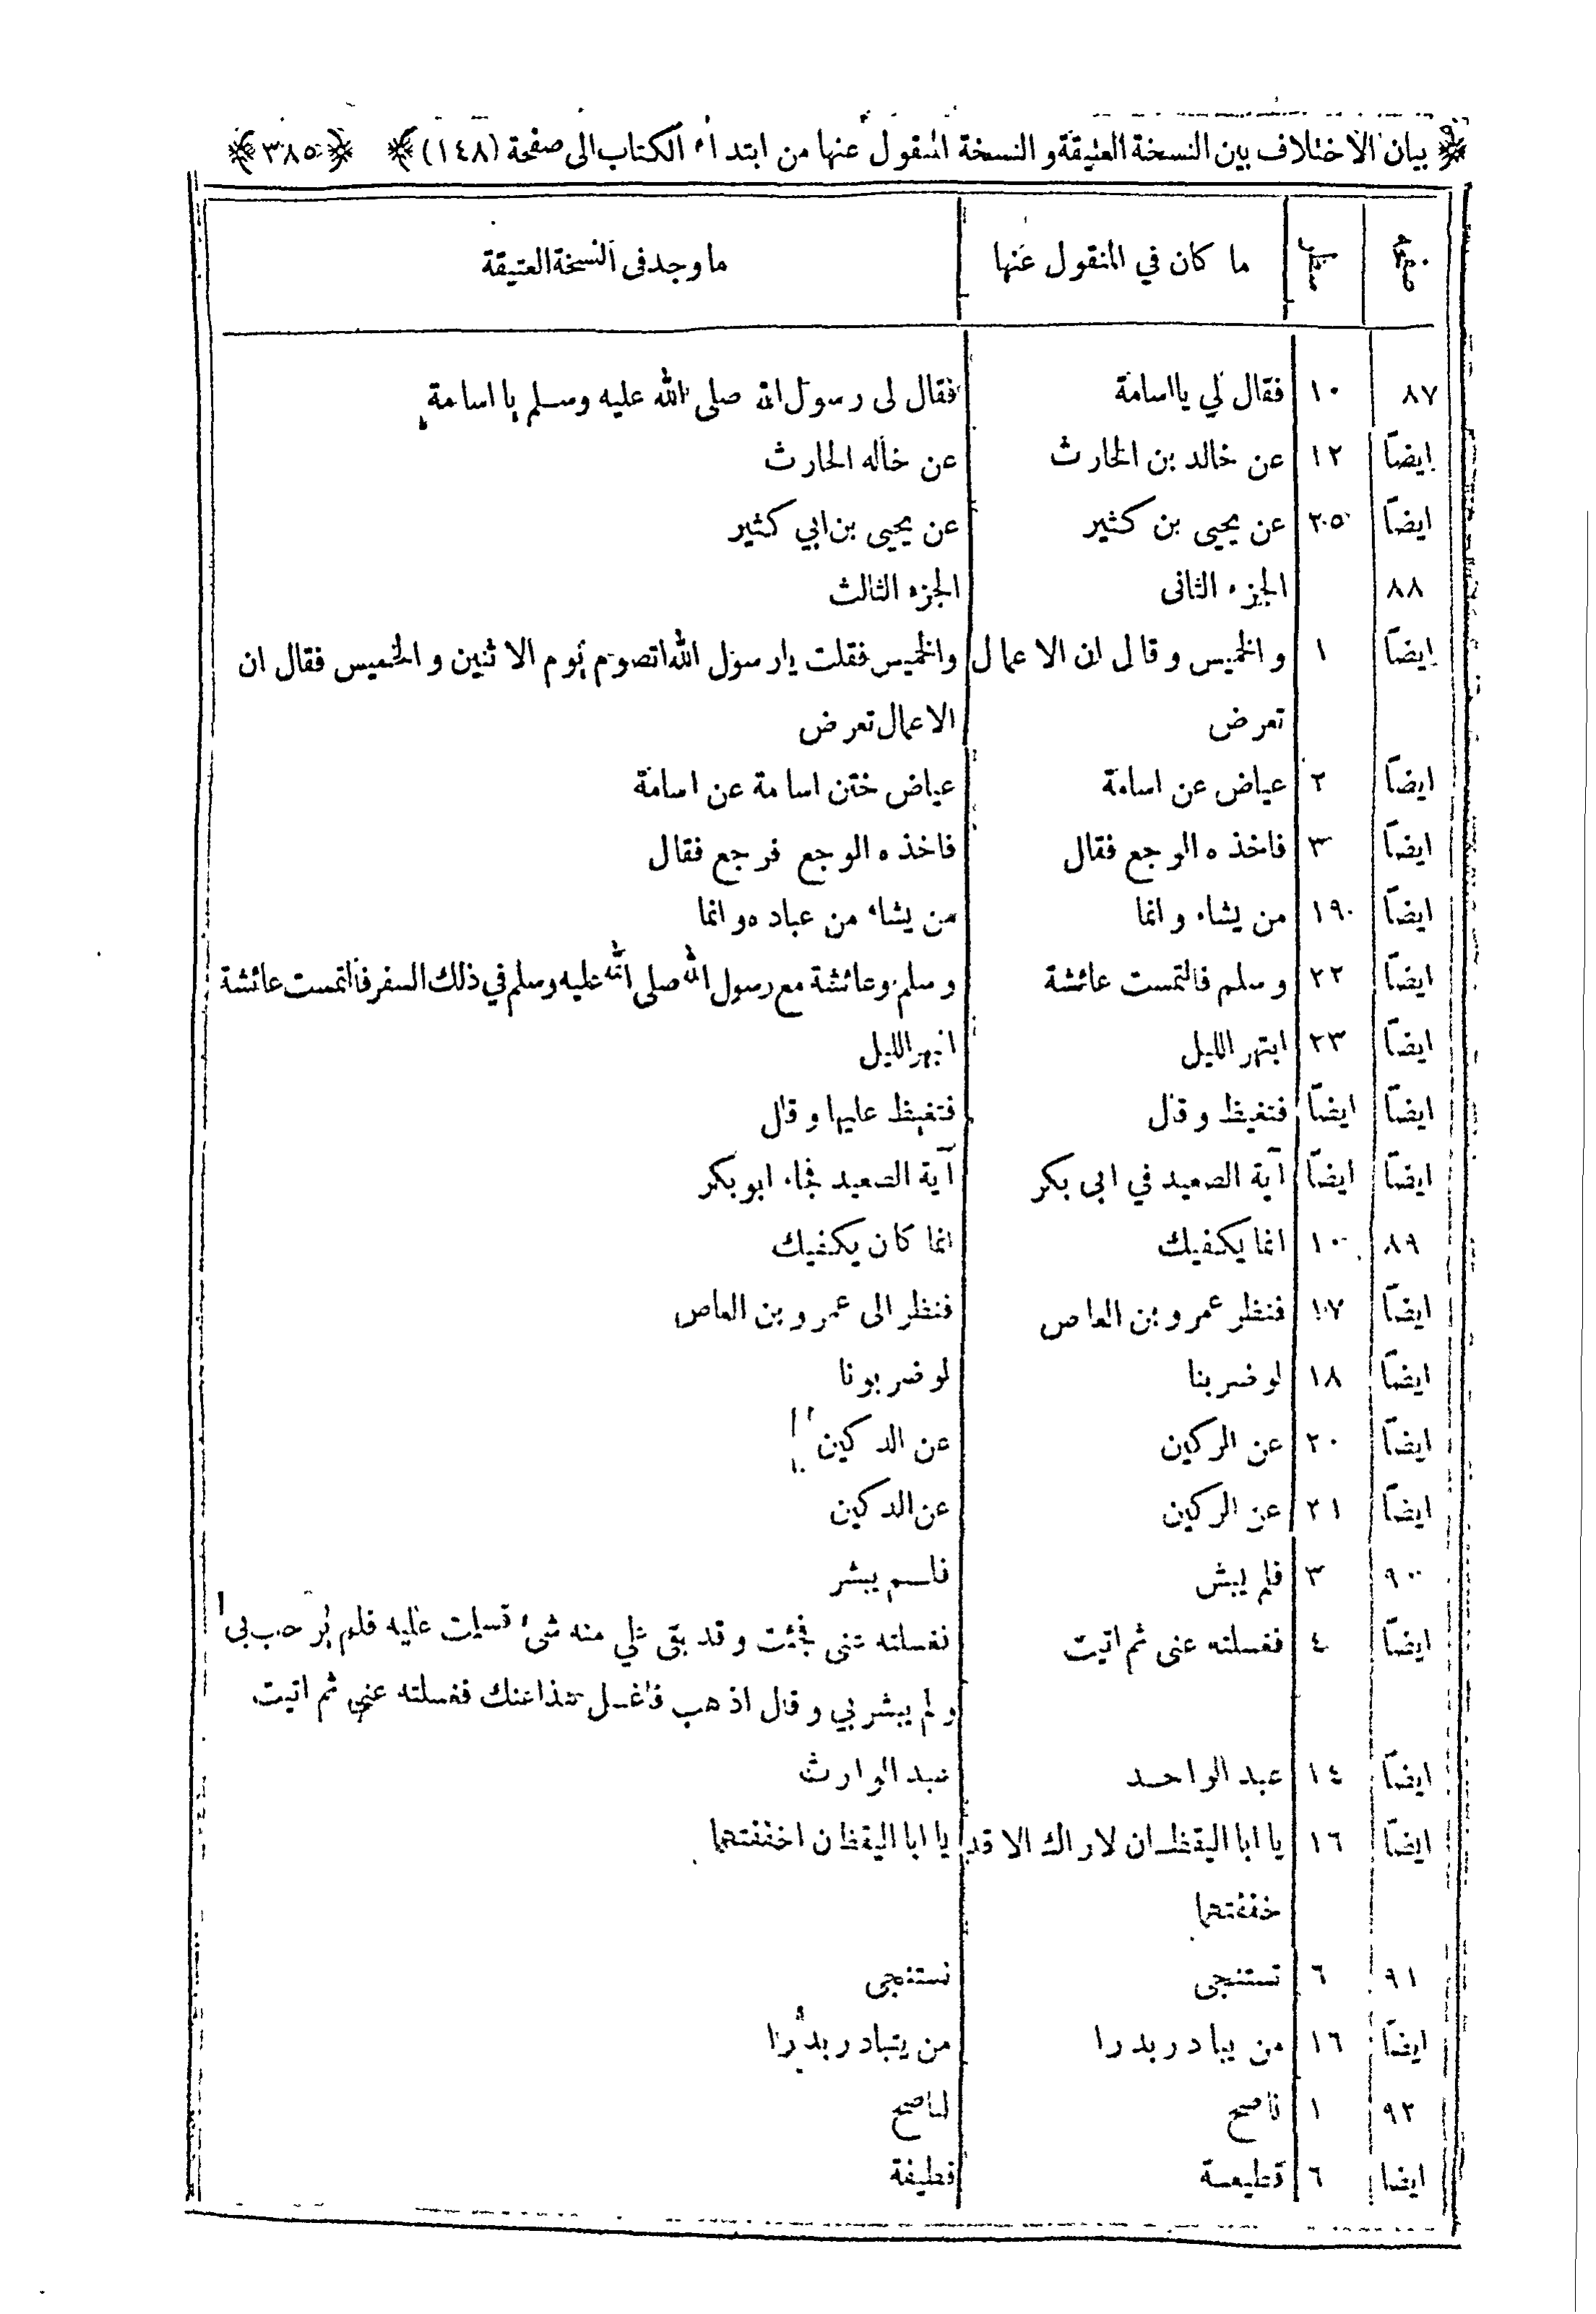 ﴿ بيان الاختلاف بين النسخة العتيقة و النسخة المنقول عنها من ابتداء الكتاب الى صفحة (١٤٨) ﴾ ﴿ ٣٨٥ ﴾
صفحه سطر ما كان في المنقول عنها ما وجد فى النسخة العتيقة
٨٧ ١٠ فقال لي يا اسامة فقال لى رسول الله صلى الله عليه وسلم يا اسامة
ايضاً ١٢ عن خالد بن الحارث عن خاله الحارث
ايضاً ٢٥ عن يحيى بن كثير عن يحيى بن ابي كثير
٨٨ الجزء الثانى الجزء الثالث
ايضاً ١ و الخميس و قال ان الاعمال والخميس فقلت يا رسول الله اتصوم يوم الاثنين و الخميس فقال ان
تعرض الاعمال تعرض
ايضاً ٢ عياض عن اسامة عياض ختن اسامة عن اسامة
ايضاً ٣ فاخذه الوجع فقال فاخذه الوجع فرجع فقال
ايضاً ١٩ من يشاء و انما من يشاء من عباده و انما
ايضاً ٢٢ و سلم فالتمست عائشة و سلم وعائشة مع رسول الله صلى الله عليه وسلم في ذلك السفر فالتمست عائشة
ايضاً ٢٣ ابتهر الليل انبهر الليل
ايضاً ايضاً فتغيظ و قال فتغيظ عليها و قال
ايضاً ايضاً آية الصعيد في ابى بكر آية الصعيد فجاء ابو بكر
٨٩ ١٠ انما يكفيك انما كان يكفيك
ايضاً ١٧ فنظر عمرو بن العاص فنظر الى عمرو بن العاص
ايضاً ١٨ لو ضربنا لو ضربونا
ايضاً ٢٠ عن الركين عن الدكين
ايضاً ٢١ عن الركين عن الدكين
٩٠ ٣ فلم يبش فلم يبشر
ايضاً ٤ فغسلته عنى ثم اتيت فغسلته عنى فجئت و قد بقى علي منه شىء فسلمت عليه فلم يرحب بي
و لم يبشر بي و قال اذهب فاغسل هذا عنك فغسلته عني ثم اتيت
ايضاً ١٤ عبد الواحد عبد الوارث
ايضاً ١٦ يا ابا اليقظان لا راك الا قد يا ابا اليقظان اخففتهما
خففتهما
٩١ ٦ تستنجى نستنجى
ايضاً ١٦ من يبادر بدرا من يتبادر بدرا
٩٢ ١ ناصح لناصح
ايضا ٦ قطيعة قطيفة